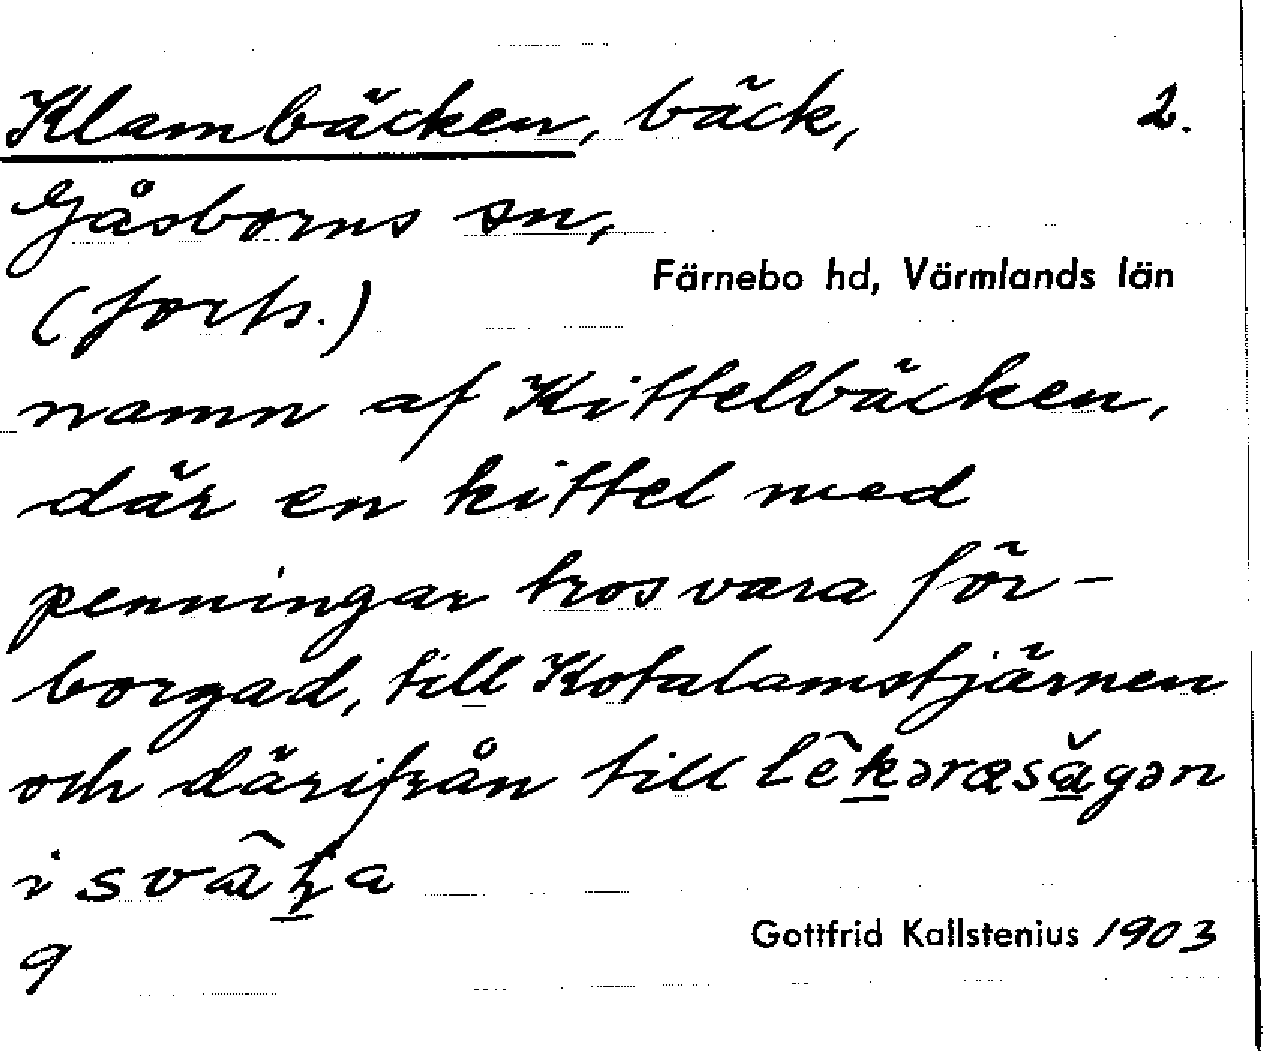 Klambäcken, bäck, 2.
Gåsborns sn,
Färnebo hd, Värmlands län
(forts.)
namn af Kittelbäcken,
där en kittel med
penningar tros vara för-
borgad, till Kotalamstjärnen
och därifrån till
i
Gottfrid Kallstenius 1903
9